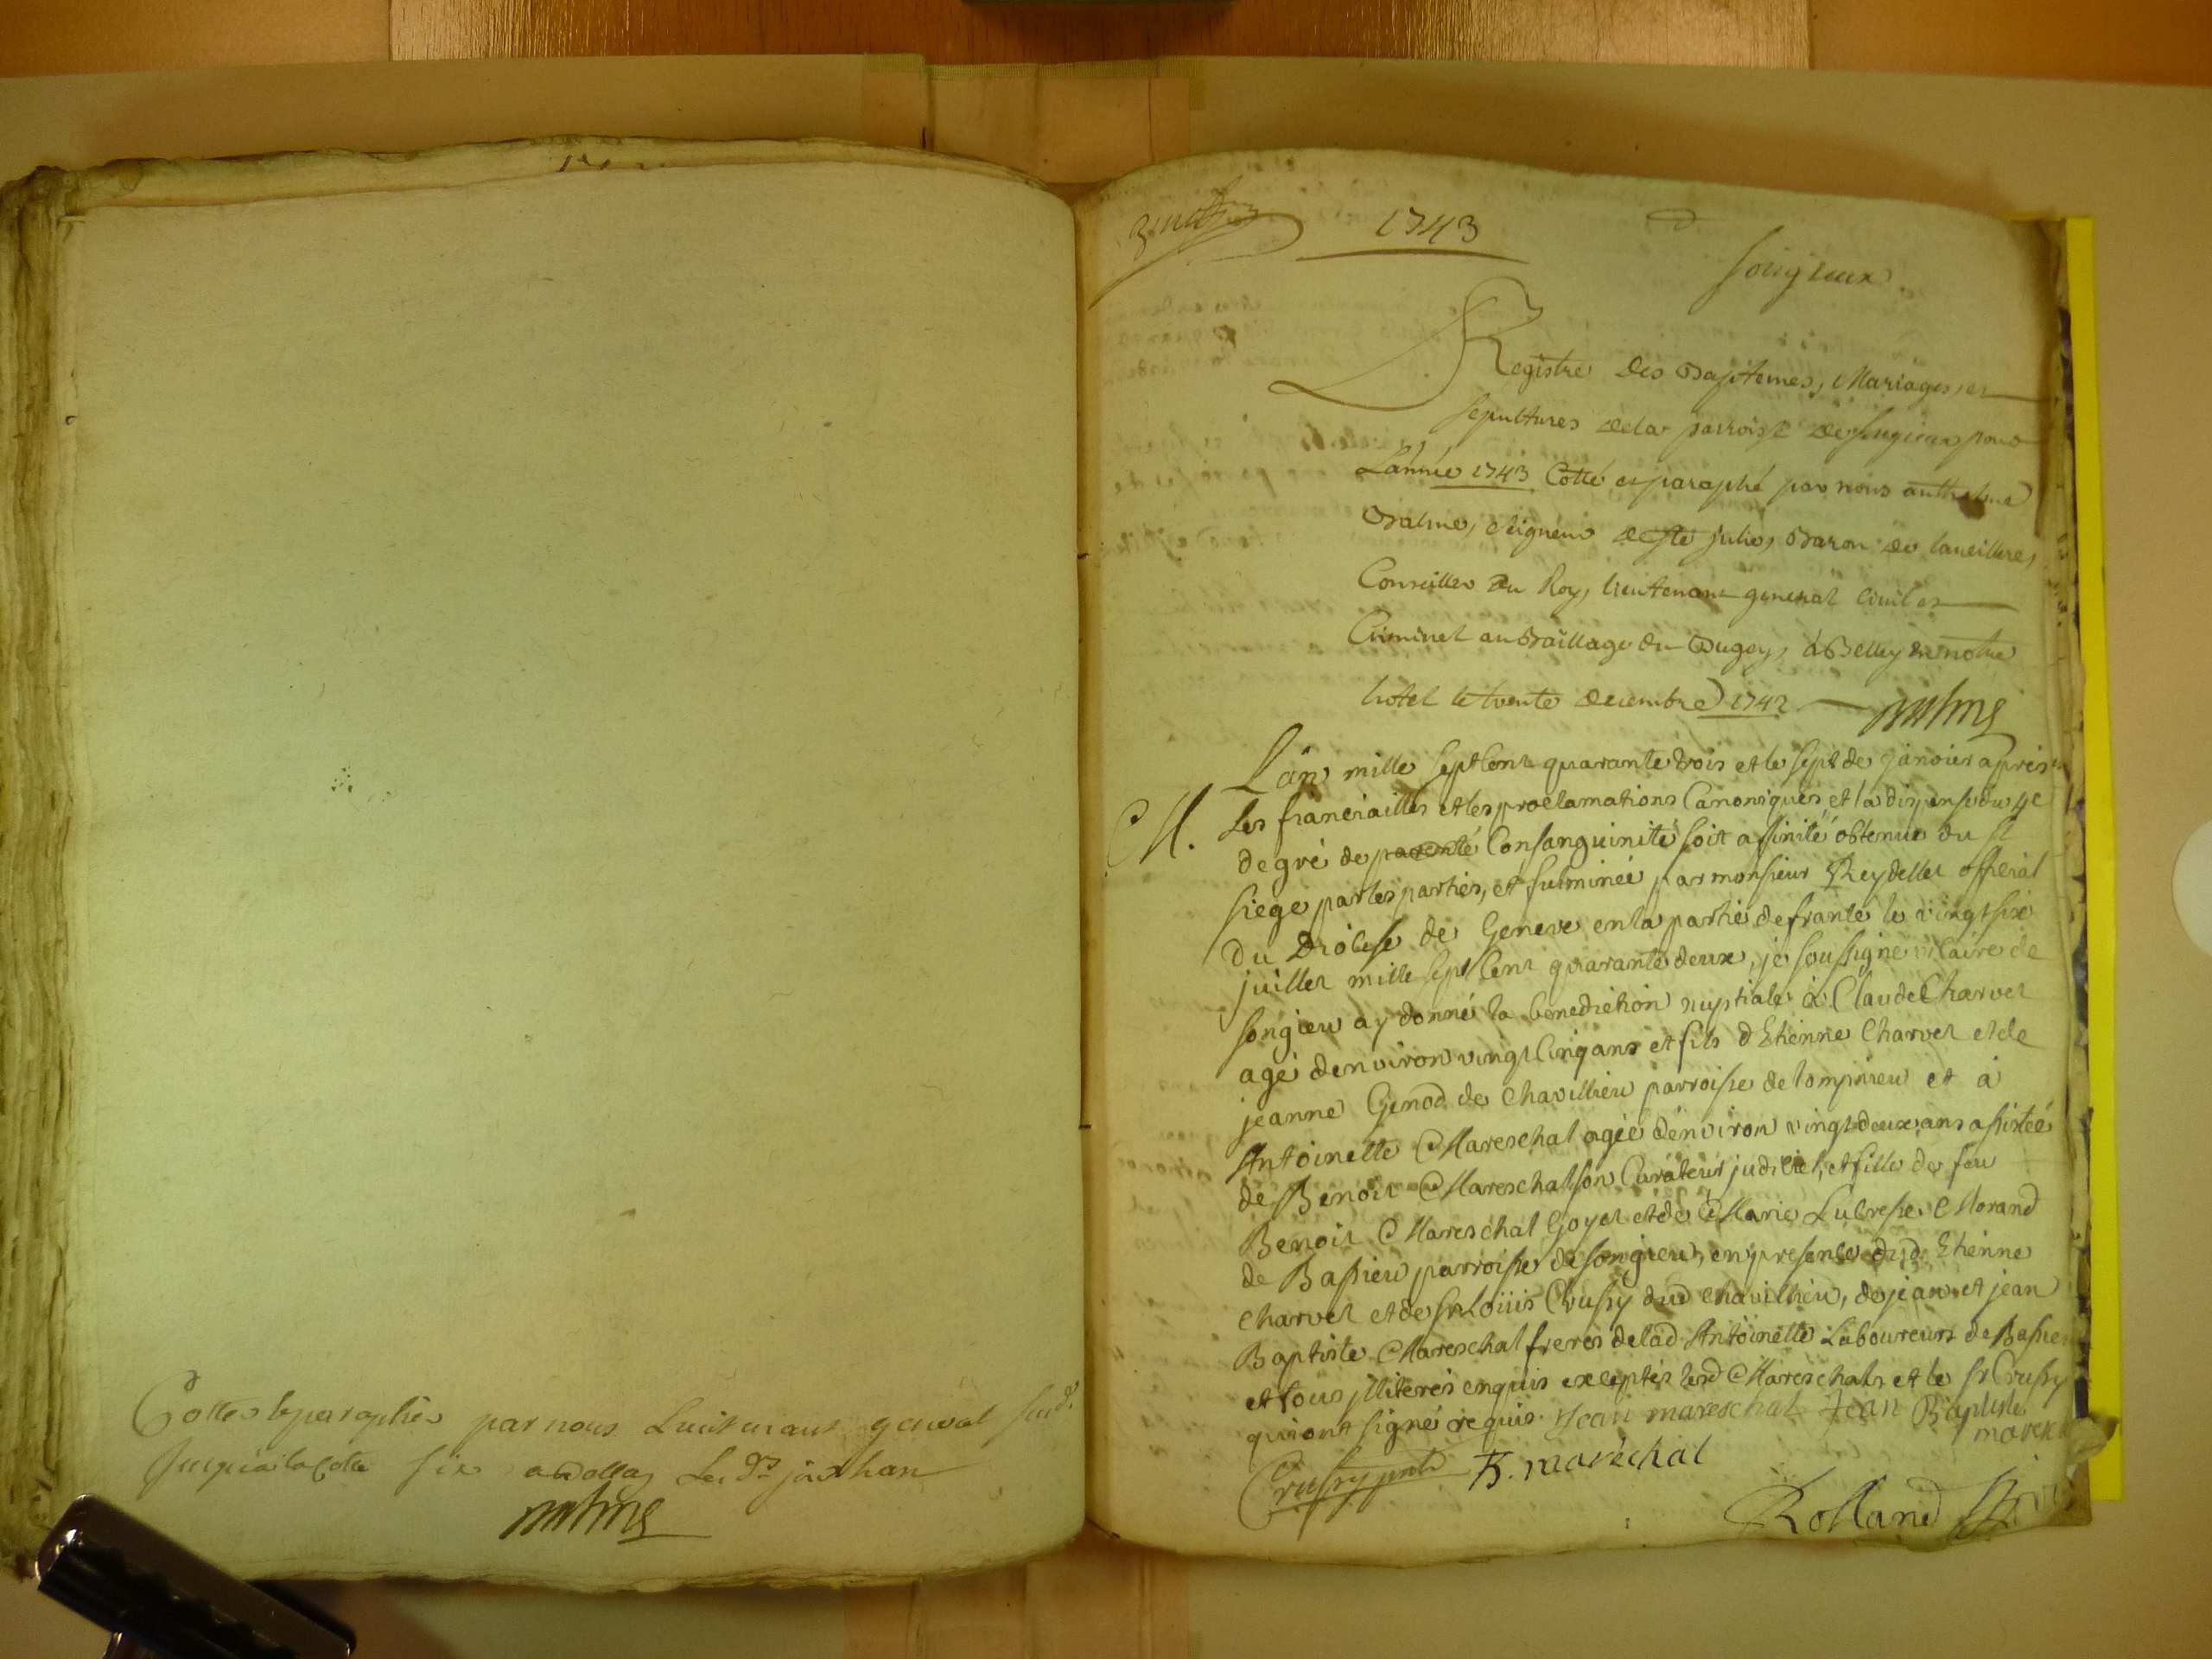 Cottes et paraphes par nous Lieutenant general susd.
jusqu'a la cotte six
Balme
1743
Songieux
Registre des Baptemes, Mariages, et
sepultures de la parroisse de Songieux pour
L'année 1743 Cotté et paraphé par nous anthelme
Balme, seigneur de Ste julie, Baron de
Conseiller du Roy, lieutenant general civil et
Criminel au Baillage du Bugey, à Belley en notre
hotel le trente decembre 1742 Balme
L'an mille sept cent quarante trois et le sept de janvier après
M. les fianciailles et les proclamations Canoniques, et la dispense du 4e
degré de parenté Consanguinité soit affinité obtenue du St
siege par les parties, et fulminée par monsieur Reydellet official
du Diocese de Geneve en la partie de france le vingt six
juillet mille sept cent quarante deux, je soussigné vicaire de
songieu ay donné la benediction nuptiale à Claude Charvet
agé denviron vingt cinq ans et fils d'Etienne Charvet et de
jeanne Genod de Chavillieu parroisse de Lompnieu et à
Antoinette Mareschal agée denviron vingt deux ans assistée
de Benoit Mareschal son Curateur judiciel, et fille de feu
Benoit Mareschal Goyet et de Marie Lucresse Morand
de Bassieu parroisse de songieu, en presence dud. Etienne
Charvet et de Sr Loüis Crussy dud Chavillieu, de jean et jean
Baptiste Mareschal freres de lad. Antoinette Laboureurs de Bassieu
et tous illiterés enquis exceptés lesd Mareschals et le sr Crussy
qui ont signé requis. Jean mareschal Jean Baptiste
maresch
Crussy pnt B. maréchal
Rolland